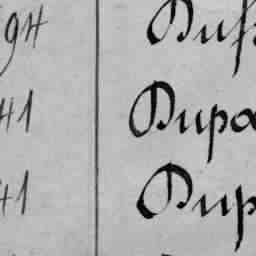 94 Duf
41 Dupa
41 Dup